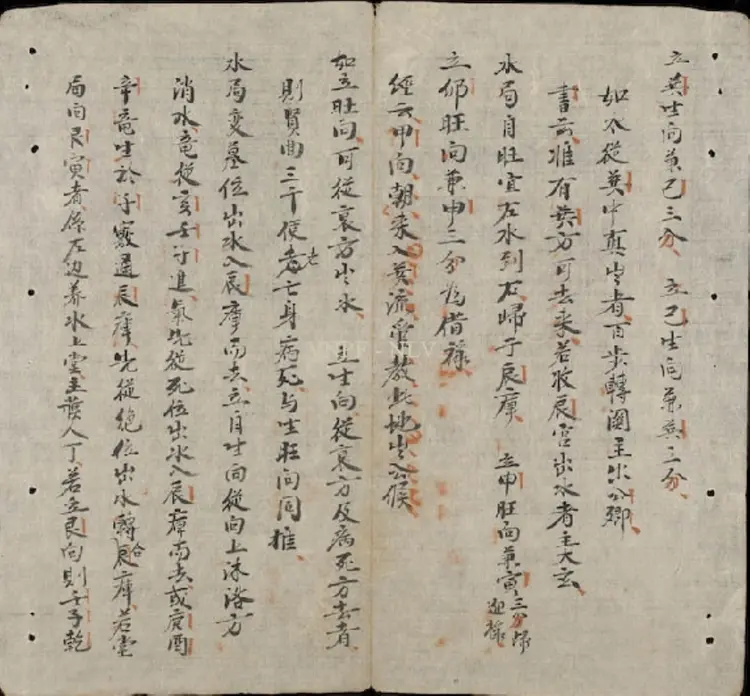 立巽生向兼巳三分 立巳生向兼巽三分
如水從巽中真出者百步轉闌主出公卿
書云惟有巽方可去來若收辰宮出水者主大玄
水局自旺宜左水到右歸于辰庫 立申旺向兼寅三分歸迎祿
立卯旺向兼申三分為借祿
經云甲向朝来入巽流管教此地出公侯
如立旺向可從衰方出水 立生向從衰方及病死方去者
則賢曲三千便老亡身病死与生旺向同推
水局变墓位出水入辰庫而去立自生向從向上沐浴方
消水竜從亥壬子進氣先從死位出水入辰庫而去或庚酉
辛竜生於子癸過辰庫先從絶位出水轉合辰庫若坐
局向艮寅者係左边养水上堂主发人丁若立艮向則壬子乾